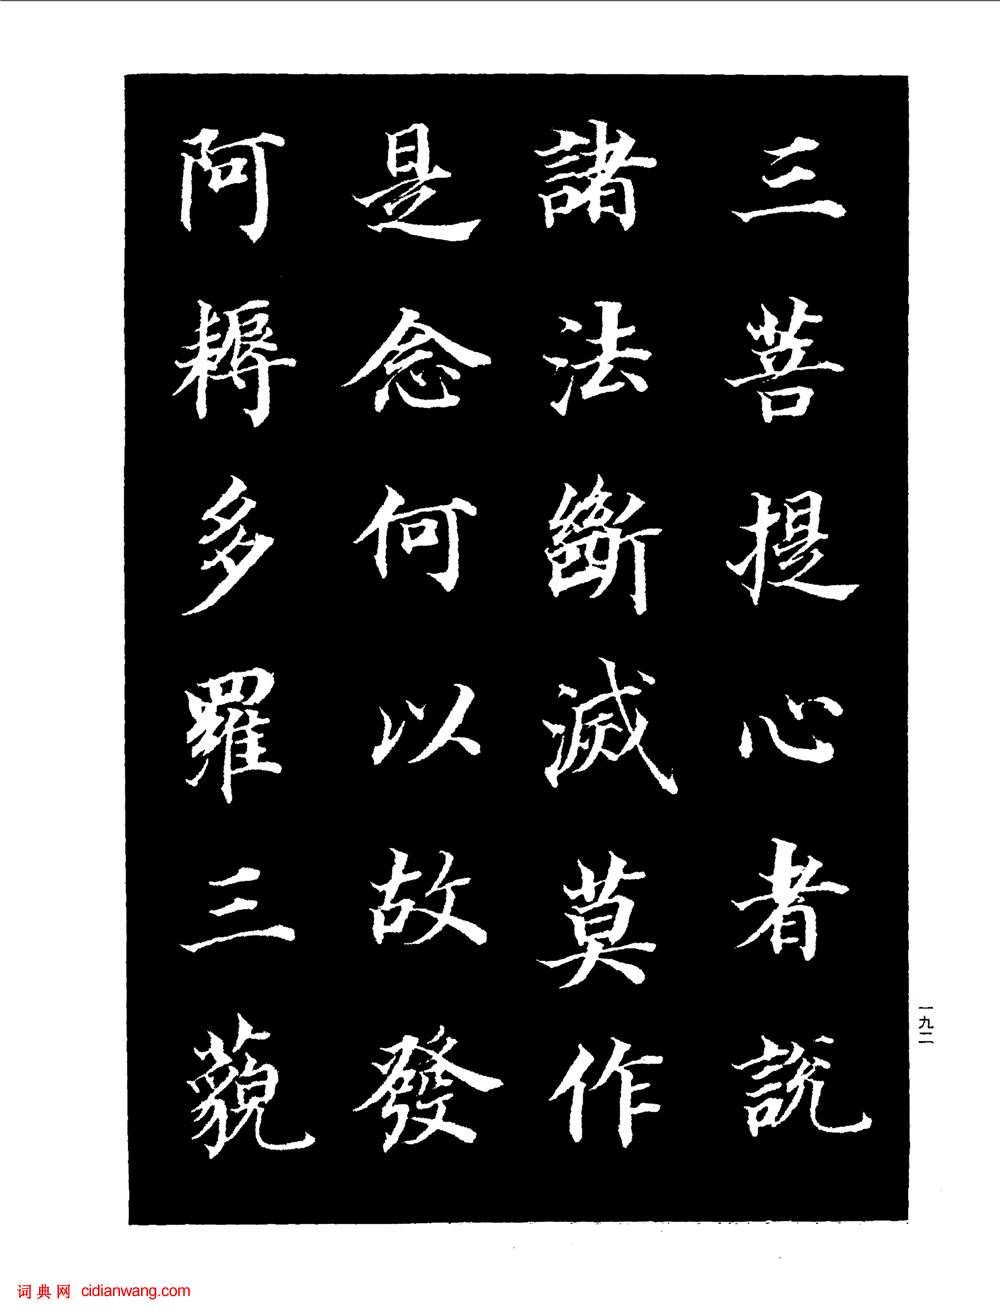 三菩提心者說
諸法斷滅莫作
是念何以故發
阿耨多羅三藐
一九二
词典网 cidianwang.com